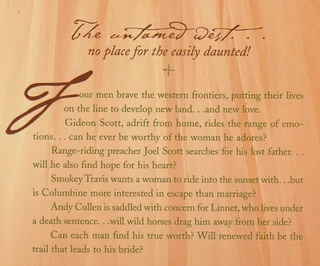 The untamed west. . .
no place for the easily daunted!
Four men brave the western frontiers, putting their lives
on the line to develop new land. . .and new love.
Gideon Scott, adrift from home, rides the range of emo-
tions. . . can he ever be worthy of the woman he adores?
Range-riding preacher Joel Scott searches for his lost father. . .
will he also find hope for his heart?
Smokey Travis wants a woman to ride into the sunset with. . .but
is Columbine more interested in escape than marriage?
Andy Cullen is saddled with concern for Linnet, who lives under
a death sentence. . .will wild horses drag him away from her side?
Can each man find his true worth? Will renewed faith be the
trail that leads to his bride?